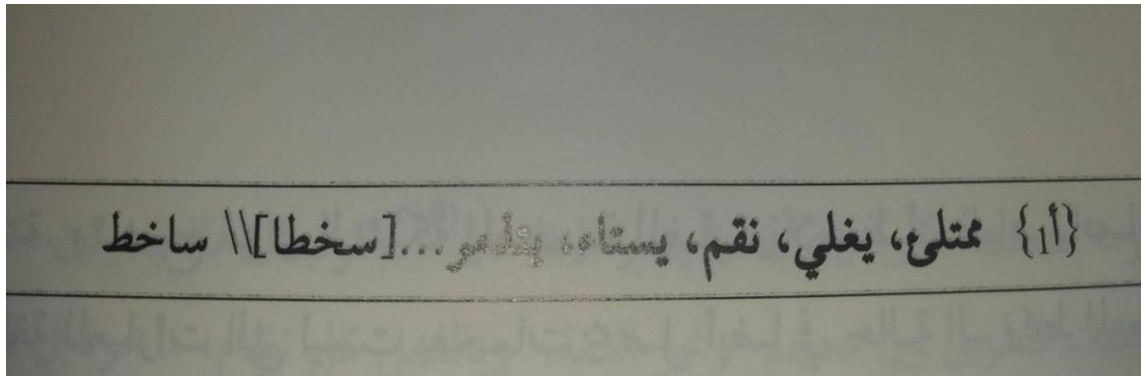 {أ1} ممتلئ، يغلي، نقم، يستاء، ...[سخطا]\\ ساخط